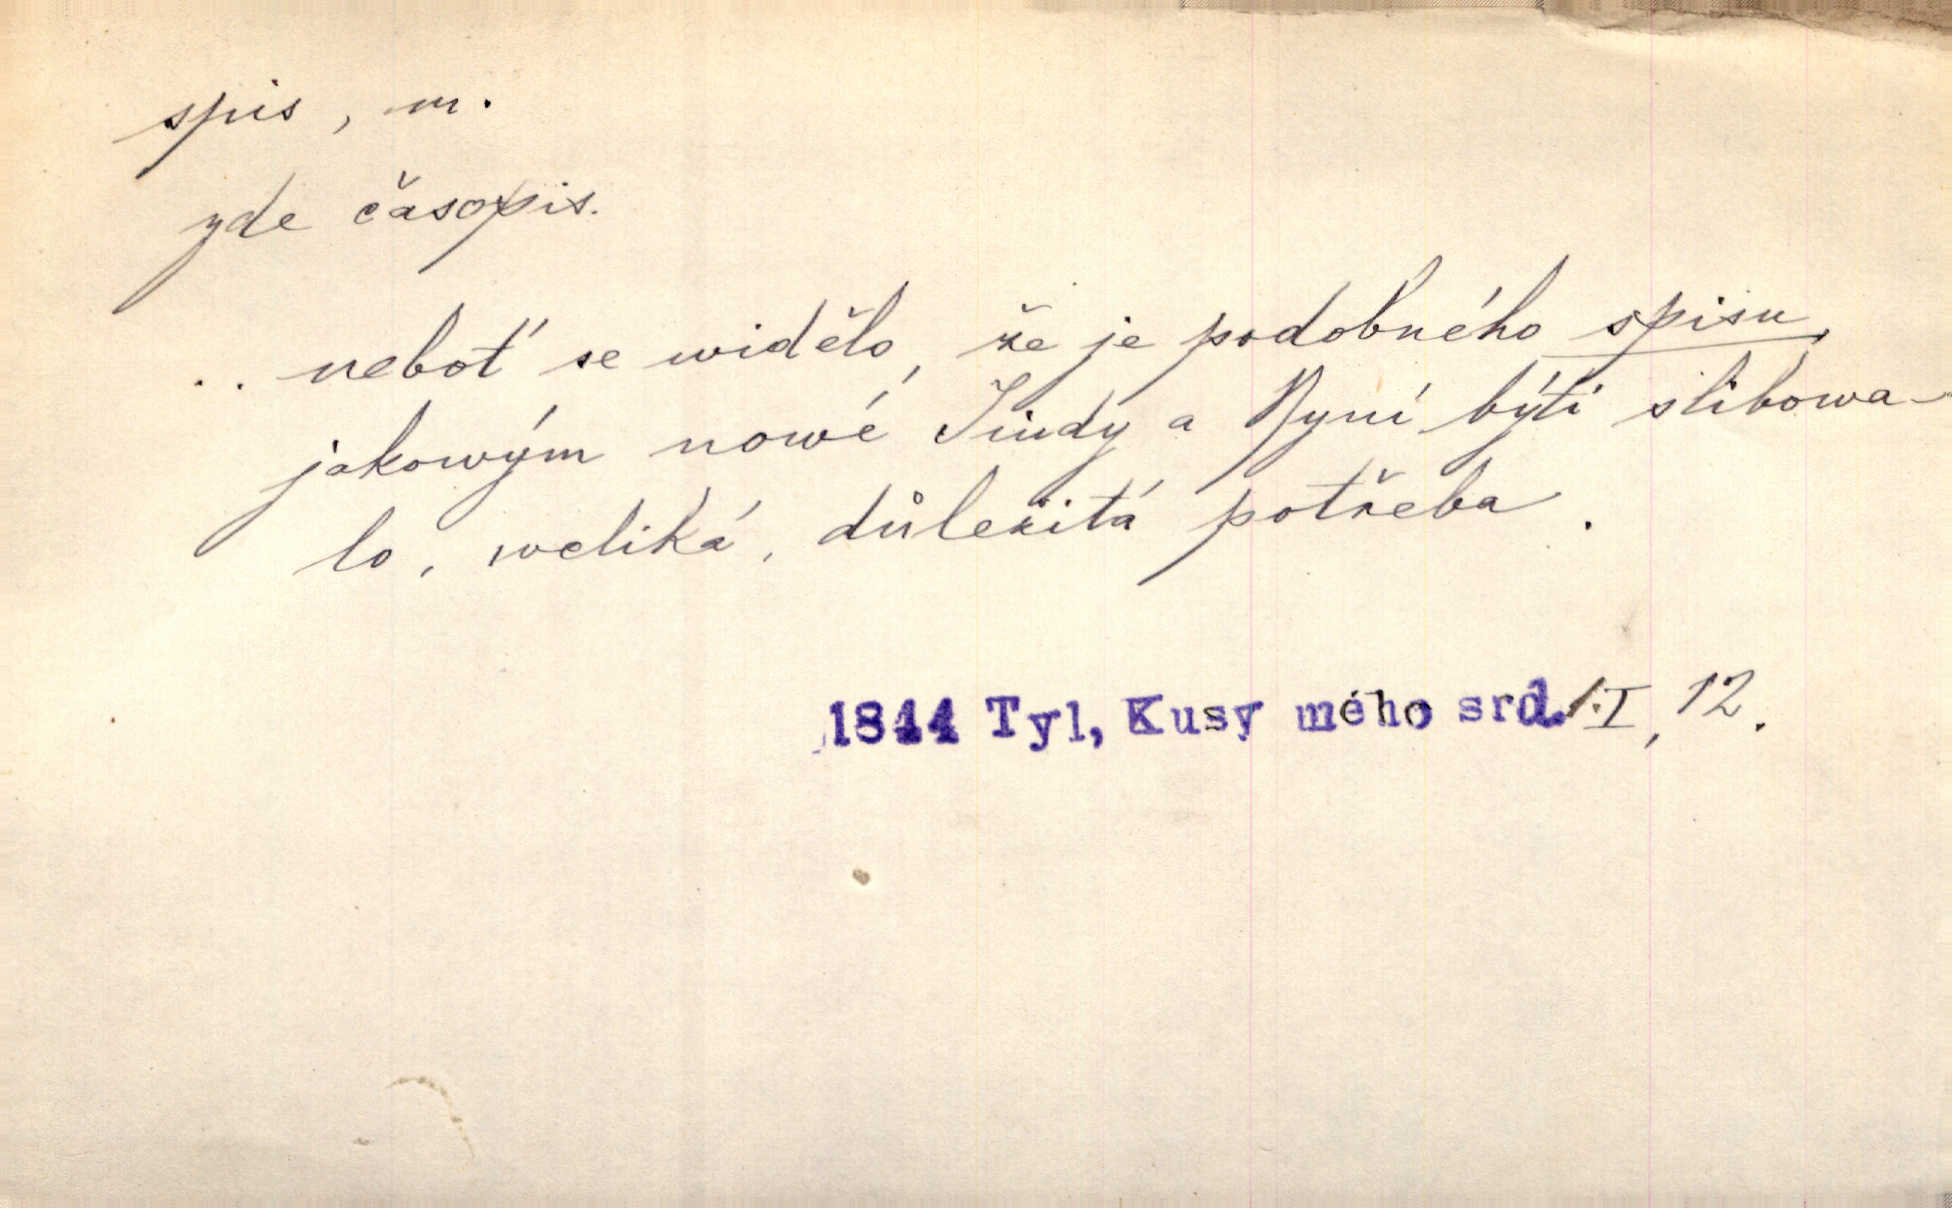 spis, m.
zde časopis.
.. neboť se widělo, že je podobného spisu,
jakowým nowé Jindy a Nyní býti slibowa-
lo, weliká, důležitá potřeba.
1844 Tyl, Kusy mého srd. I, 12.